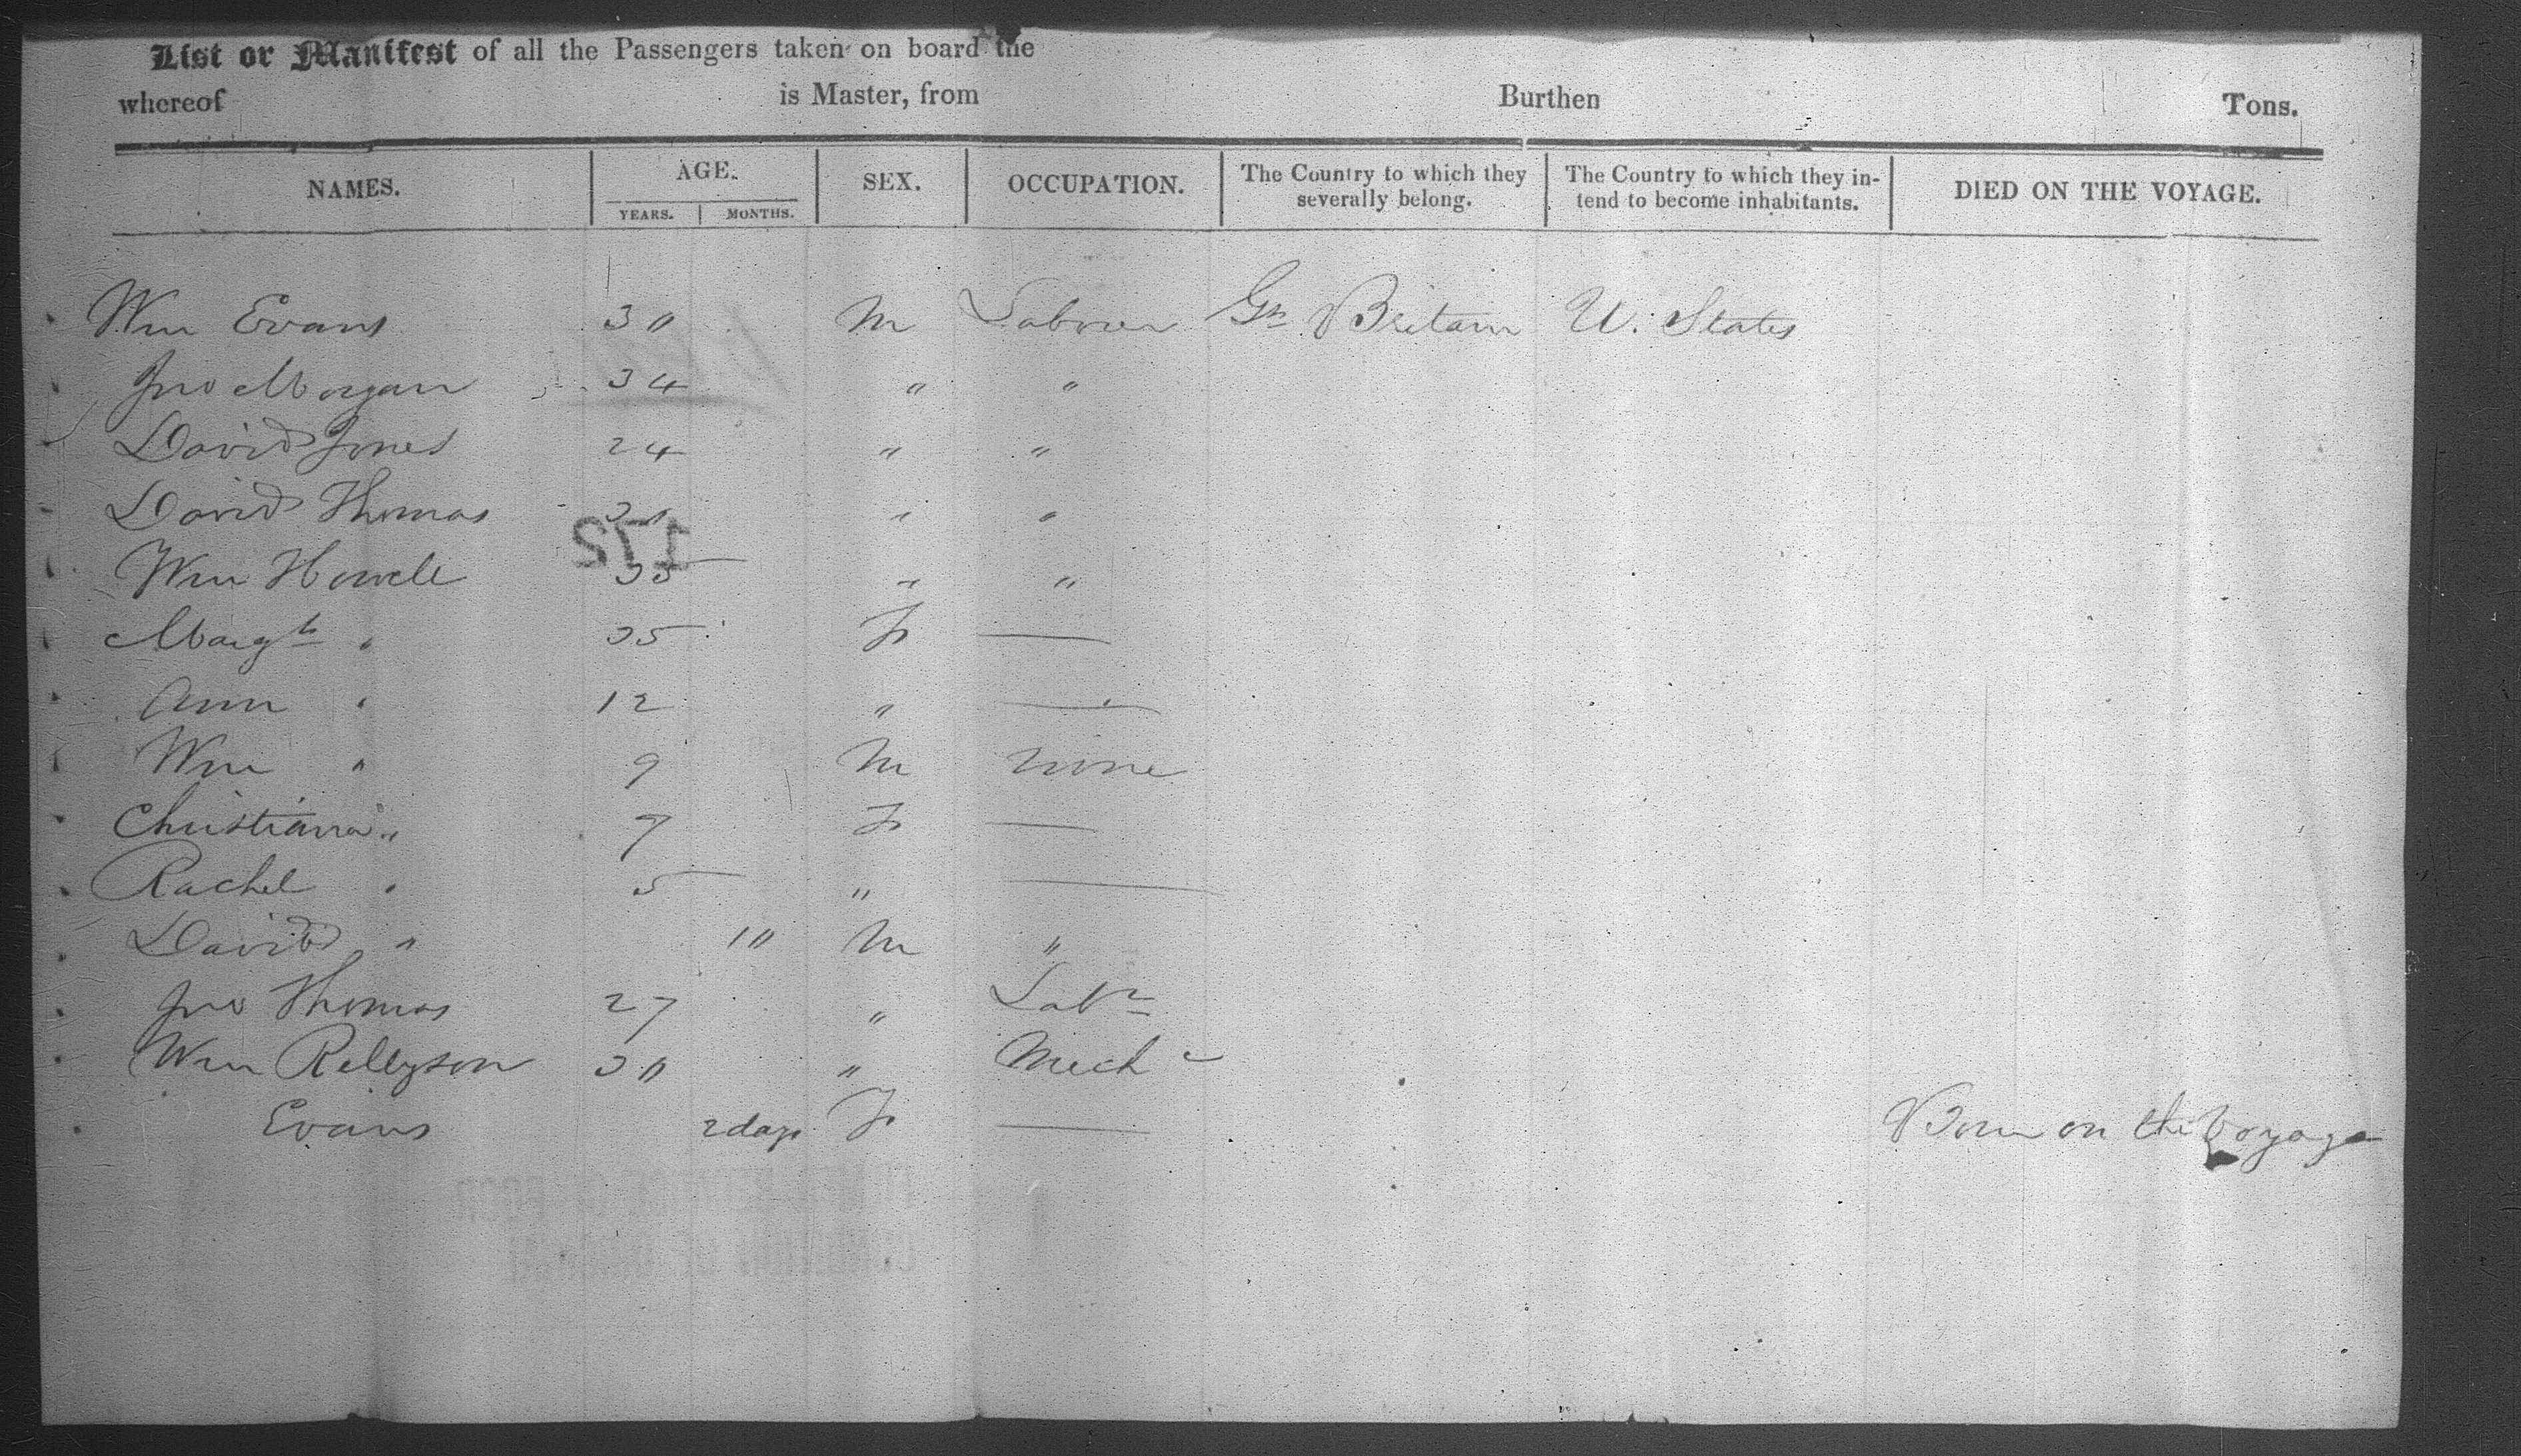 List or Manifest of all the Passengers taken on board the
whereof is Master, from Burthen Tons.
NAMES. AGE. SEX. OCCUPATION. The Country to which they severally belong. The Country to which they intend to become inhabitants. DIED ON THE VOYAGE.
YEARS. MONTHS.
Wm Evans 30 M Labourer Gt Britain U. States
Jno Morgan 34 " "
David Jones 24 " "
David Thomas 30 " "
172
Wm Howell 35 " "
Margt " 35 F —
Ann " 12 " —
Wm " 9 M none
Christiana " 7 F —
Rachel " 5 " —
David " 10 M "
Jno Thomas 27 " Labr
Wm Rellyson 30 " Mechc
Evans 2 days F — Born on the Voyage